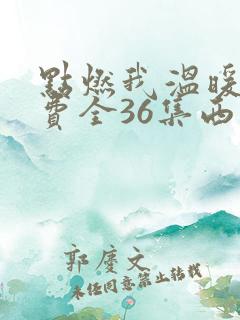 點燃我 溫暖
費全36集西
郭慶文
未经同意禁止转载